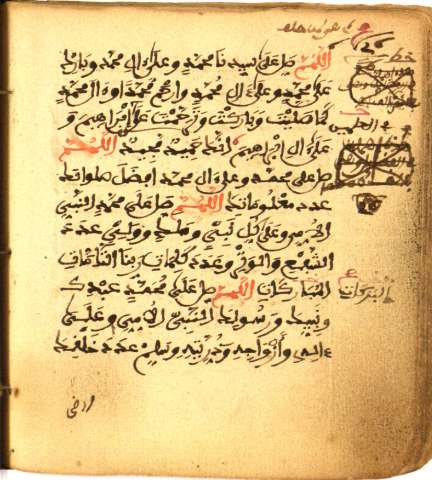 اللهم صل على سيدنا محمد وعلى ءال محمد وبارك
على محمد وعلى ءال محمد وارحم محمدا وءال محمد
كما صليت وباركت وترحمت على إبراهيم و
على ءال إبراهيم إنك حميد مجيد اللهم
صل على محمد وعلى ءال محمد أفضل صلواتك
عدد معلوماتك اللهم صل على محمد النبي
الامي وعلى كل نبي وملك وولي عدد
الشفع والوتر وعدد كلمات ربنا التامات
المباركات اللهم صل على محمد عبدك
ونبيك ورسولك النبي الامي وعلى
ءاله وأزواجه وذريته وسلم عدد خلقك
ورضى